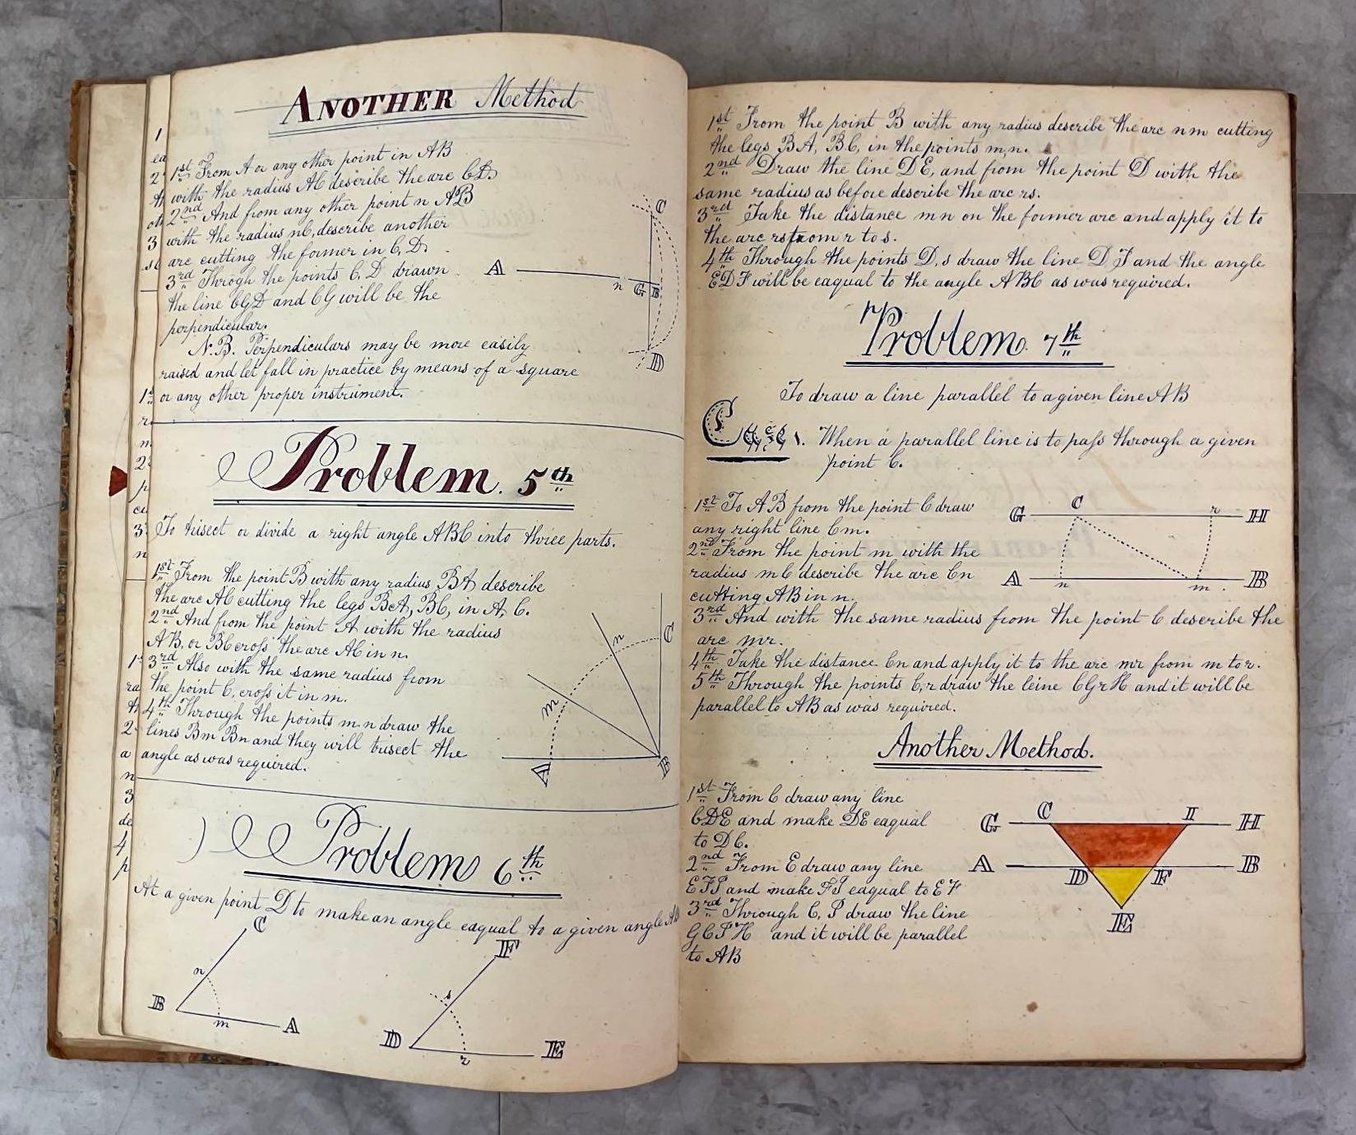 ANOTHER Method
1st From A or any other point in AB
with the radius AC describe the arc CD
2nd And from any other point n AB
with the radius nC, describe another
arc cutting the former in C, D
3rd Throgh the points C, D drawn
the line CGD and CG will be the
perpendicular.
N.B. Perpendiculars may be more easily
raised and let fall in practice by means of a square
or any other proper instrument.
C
A
n G B
D
Problem. 5th
To trisect or divide a right angle ABC into three parts.
1st From the point B with any radius BA describe
the arc AC cutting the legs BA, BC, in A, C.
2nd And from the point A with the radius
AB, or BC cross the arc AC in n.
3rd Also with the same radius from
the point C, cross it in m.
4th Through the points m n draw the
lines Bm Bn and they will trisect the
angle as was required.
n
C
m
A
B
Problem 6th
At a given point D to make an angle eaqual to a given angle AB
C
n
B
m
A
F
s
D
r
E
1st From the point B with any radius describe the arc nm cutting
the legs BA, BC, in the points m, n.
2nd Draw the line DE, and from the point D with the
same radius as before describe the arc rs.
3rd Take the distance mn on the former arc and apply it to
the arc rs from r to s.
4th Through the points D, s draw the line DF and the angle
EDF will be eaqual to the angle ABC as was required.
Problem 7th
To draw a line parallel to a given line AB
Case 1. When a parallel line is to pass through a given
point C.
1st To AB from the point C draw
any right line Cm.
2nd From the point m with the
radius mC describe the arc Cn
cutting AB in n.
3rd And with the same radius from the point C describe the
arc mr.
4th Take the distance Cn and apply it to the arc mr from m to r.
5th Through the points C, r draw the leine CGrH and it will be
parallel to AB as was required.
G C r H
A n m B
Another Method.
1st From C draw any line
CDE and make DE eaqual
to DC.
2nd From E draw any line
EFI and make FI eaqual to EF
3rd Through C, I draw the line
GCIH and it will be parallel
to AB
G C I H
A D F B
E